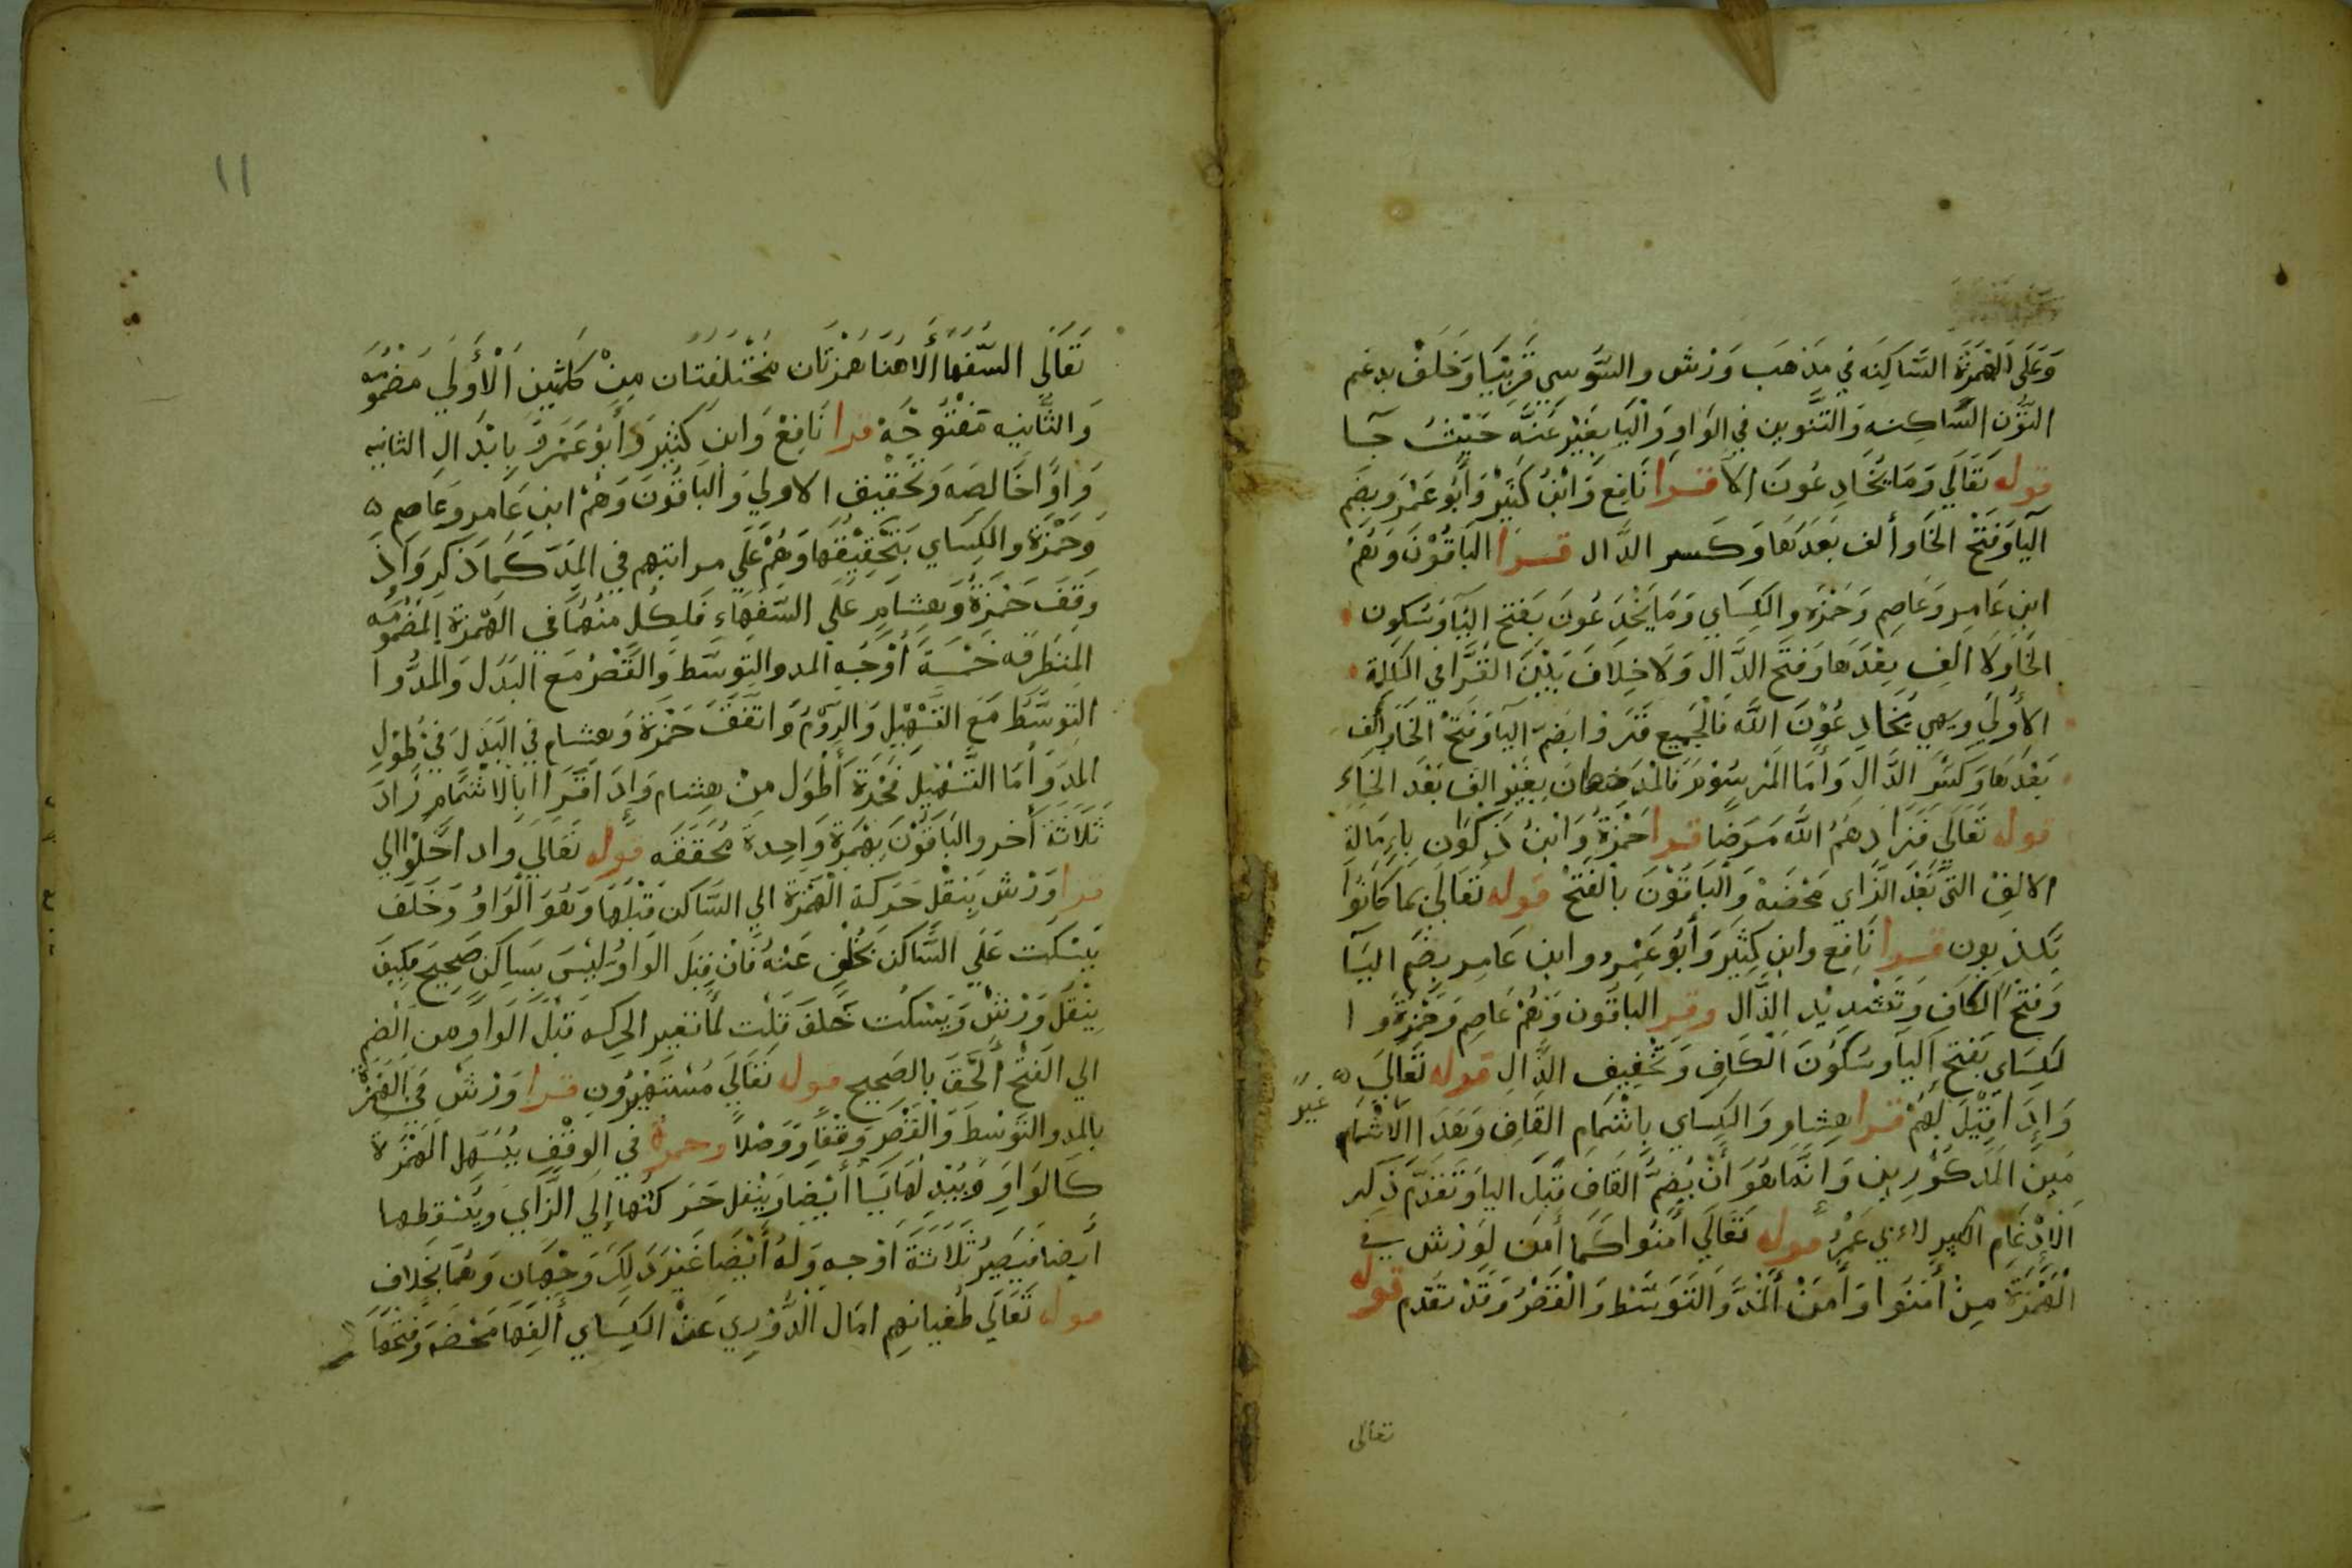 وَعَلَى الهَمْزَة السَّاكِنَه في مَذهَب وَرْش والسُّوسِي قَرِيبًا وَخَلَفْ يدغم
النُّون السَّاكِنه وَالتَّنوين في الوَاو وَاليَا بِغَيْر غنَّه حَيْثُ جَا
قوله تَعَالَي وَمَا يُخَادِعُونَ الا قرا نَافِع وَابْنُ كَثِيْر وَأَبُو عَمْرو بضَم
اليَا وَفَتْح الخَا وألف بَعَدَهَا وَكَسر الدَّال قرا البَاقُوْنَ وَهُمْ
ابن عَامِر وَعَاصِم وَحَمْزَه والكِسَاي وَمَا يَخْدَعُونَ بفَتح اليَا وَسُكون
الخَا وَلَا الف بعْدَهَا وَفتَح الدَّال وَلَا خِلَافَ بَيْنَ القُرَّا في الكَلِمَة
الأُولَي وَهِي يُخَادِعُوْنَ اللَّه فَالجَمِيع قَرَوْا بضَمّ اليَا وَفَتْح الخَا وألِف
بَعْدَهَا وَكَسْر الدَّال وَأمَا المَرسُوْم فَالمَدَ حهان بغَيْر الف بَعْدَ الخَاءِ
قوله تَعَالَي فَزَادهَمُ اللَّه مَرَضًا قرا حَمْزَةُ وَابْنُ ذَكْوَان بِإِمَالَةِ
الالِفْ التَّي بَعْدَ الزَّاي مَحْضَهْ وَالْبَاقُوْنَ بالفَتْح قوله تَعَالَي بمَا كَانُوْا
يَكذبون قرا نَافِع وابن كَثيَر وَأبُو عَمْرو وابن عَامِر بضَم اليَا
وَفتْح الكَافِ وَتَشْدِيْد الذَّال وقرا البَاقُون وَهُمْ عَاصِم وَحَمْزَةُ وَا
لكِسَاي بَفتح اليَا وَسُكُوْنَ الكَافِ وَتَخْفِيف الذَّال قوله تَعَالَي ه
وَإِذَا قِيْلَ لَهُمْ قرا هِشَام وَالكِسَاي بِاشْمَامِ القَافِ وَبَعدَ االاشْمَام غير
مبين المَذكُوْرِين وَانَّمَا هُوَ أنْ يُضَمَّ القَافِ قَبْلَ اليَا وَتَقَدَّمَ ذِكر
الإِدْغَامِ الكبير لاءبي عَمْرو قوله تَعَالَي أمَنُوا كَمَا أمَن لوَرْش في
الْهَمْزَة مِنْ أمَنَوا وَأمَنْ ألمْدَّ وَالتَوَسُّط وَالْقَصْرُ وَقَدْ تقَدَّم قوله
تعالى
١١
تَعَالَي السُّفهَاأَلا هُنَا هَمْزتَان مُخْتَلِفتَان مِنْ كَلمتَين الْأُولَي مَضْمُوُمَه
وَالثَّانِيه مَفْتُوحَةْ قرا نَافِعْ وَابنِ كَثِيْر وَأبُو عَمَرو بِابْدَال الثانيه
وَاوًا خَالِصَه وَتَحَقِيْق الاولي وَالبَاقُونَ وَهُمْ ابن عَامِر وَعَاصِم ه
وَحَمْزَة والكِسَاي بتَحْقِيْقهَا وَهُمْ عَلَي مراتبهم في المَدّ كَمَا ذَكر وَاذا
وَقفَ حَمْزَةُ وَهِشَام عَلَي السُّفهَاء فَلِكُل منهُمَا في الهَمْزة المَضمُوُمَه
المنتَطرفه خَمْسَةَ أوْجُهِ المد والتوسَّط وَالْقَصْرُ مَع البَدَل وَالمَدُّ وا
لتوسَّط مَعَ التَّسْهِيْلِ وَالرَّوْمُ وَاتفَقَ حَمْزَة وَهشام في البَدَل في طُوْلِ
المَدَ وَأمَا التَّسْهِيْل فَحْزَة أَطْوَل منْ هِشام وَاذَا قَرَا ابالاشْمَامِ زَادَ
ثَلَاثَة أخر والبَاقُوْنَ بهَمْزَة وَاحِدة مُحَقَقَه قوله تَعَالَي واد اخَلَوْا الي
قرا وَرْش بِنقْل حَرَكة الْهَمْزَة الي السَّاكن قبْلَهَا وَهُوَ الْوَاوُ وَخَلَف
يَسْكت عَلَي السَّاكن بخُلْفٍ عَنْهُ فَان قِيْلَ الوَاوُ ليْسَ بسَاكن صَحِيح فكيفَ
يَنْقُلُ وَرْشْ وَيَسْكُت خَلَفَ قُلْت لمَا تغير الحركه قَبْلَ الوَاوِ من الضم
الي الفَتْح أَلْحَق بالصَحِيح قوله تَعَالَيَ مُسْتَهْزِؤُن قرا وَرْش في الْهَمْزَ
بالمَد والتَوَسُّط وَالْقَصْر وَقفًا وَوَصْلًا وحمزة في الوَقْف يُسَهل الهَمْزَة
كَالوَاوِ وَيُبْدِلهَا يَا أيْضًا وَيْنقل حَرَكتُهَا إِلي الزَّاي وَيُسْقِطهَا
أيضا فَيَصِيْرُ ثَلَاثَةَ أوْجهِ وَلهُ أيْضَا غَيْر ذَلِكَ وَجْهَان وَهُمَا بخَلَاف
قوله تَعَالَي طُغيانهِم امَال الدُّوْرِي عَنْ الكِسَاي ألِفَهَا مَحْضَه وَفَتحُهَا